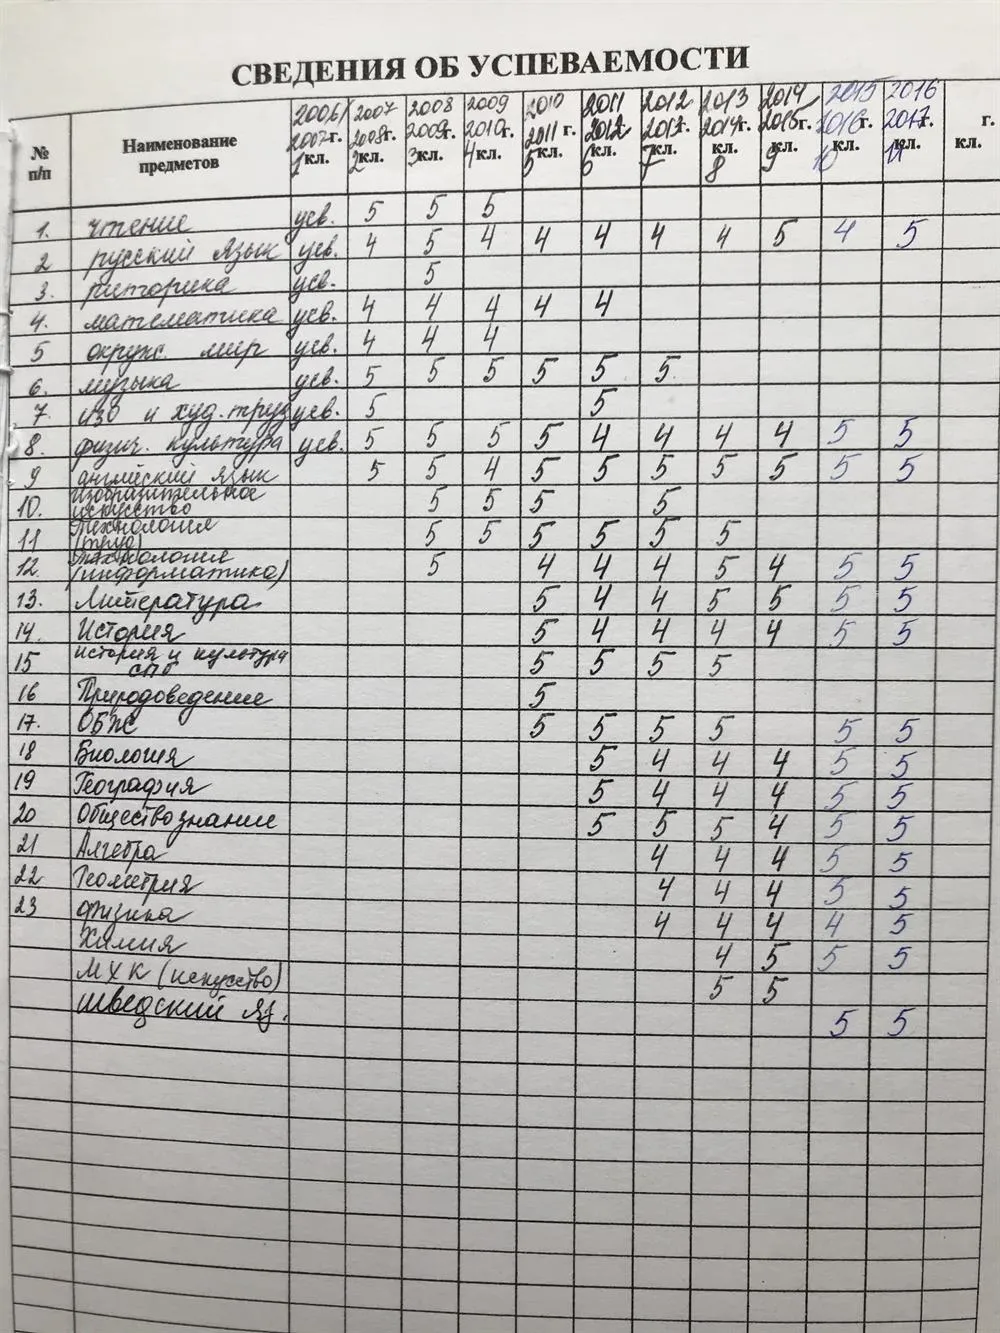 СВЕДЕНИЯ ОБ УСПЕВАЕМОСТИ
№ п/п Наименование предметов 2006/2007г. 1кл. 2007 2008г. 2кл. 2008 2009г. 3кл. 2009 2010г. 4кл. 2010 2011 г. 5кл. 2011 2012г. 6кл. 2012 2013г. 7кл. 2013 2014г. 8кл. 2014 2015г. 9кл. 2015 2016г. 10кл. 2016 2017г. 11кл. г. кл.
1. чтение усв. 5 5 5
2 русский язык усв. 4 5 4 4 4 4 4 5 4 5
3. риторика усв. 5
4. математика усв. 4 4 4 4 4
5 окружс. мир усв. 4 4 4
6. музыка усв. 5 5 5 5 5 5
7. изо и худ. труд усв. 5 5
8. физич. культура усв. 5 5 5 5 4 4 4 4 5 5
9 английский язык 5 5 4 5 5 5 5 5 5 5
10. изобразительное искусство 5 5 5 5
11 технология (труд) 5 5 5 5 5 5
12. технология (информатика) 5 4 4 4 5 4 5 5
13. Литература 5 4 4 5 5 5 5
14. История 5 4 4 4 4 5 5
15 история и культура СПб 5 5 5 5
16 Природоведение 5
17. ОБЖ 5 5 5 5 5 5
18 Биология 5 4 4 4 5 5
19 География 5 4 4 4 5 5
20 Обществознание 5 5 5 4 5 5
21 Алгебра 4 4 4 5 5
22 Геометрия 4 4 4 5 5
23 Физика 4 4 4 4 5
Химия 4 5 5 5
МХК (искусство) 5 5
шведский яз. 5 5